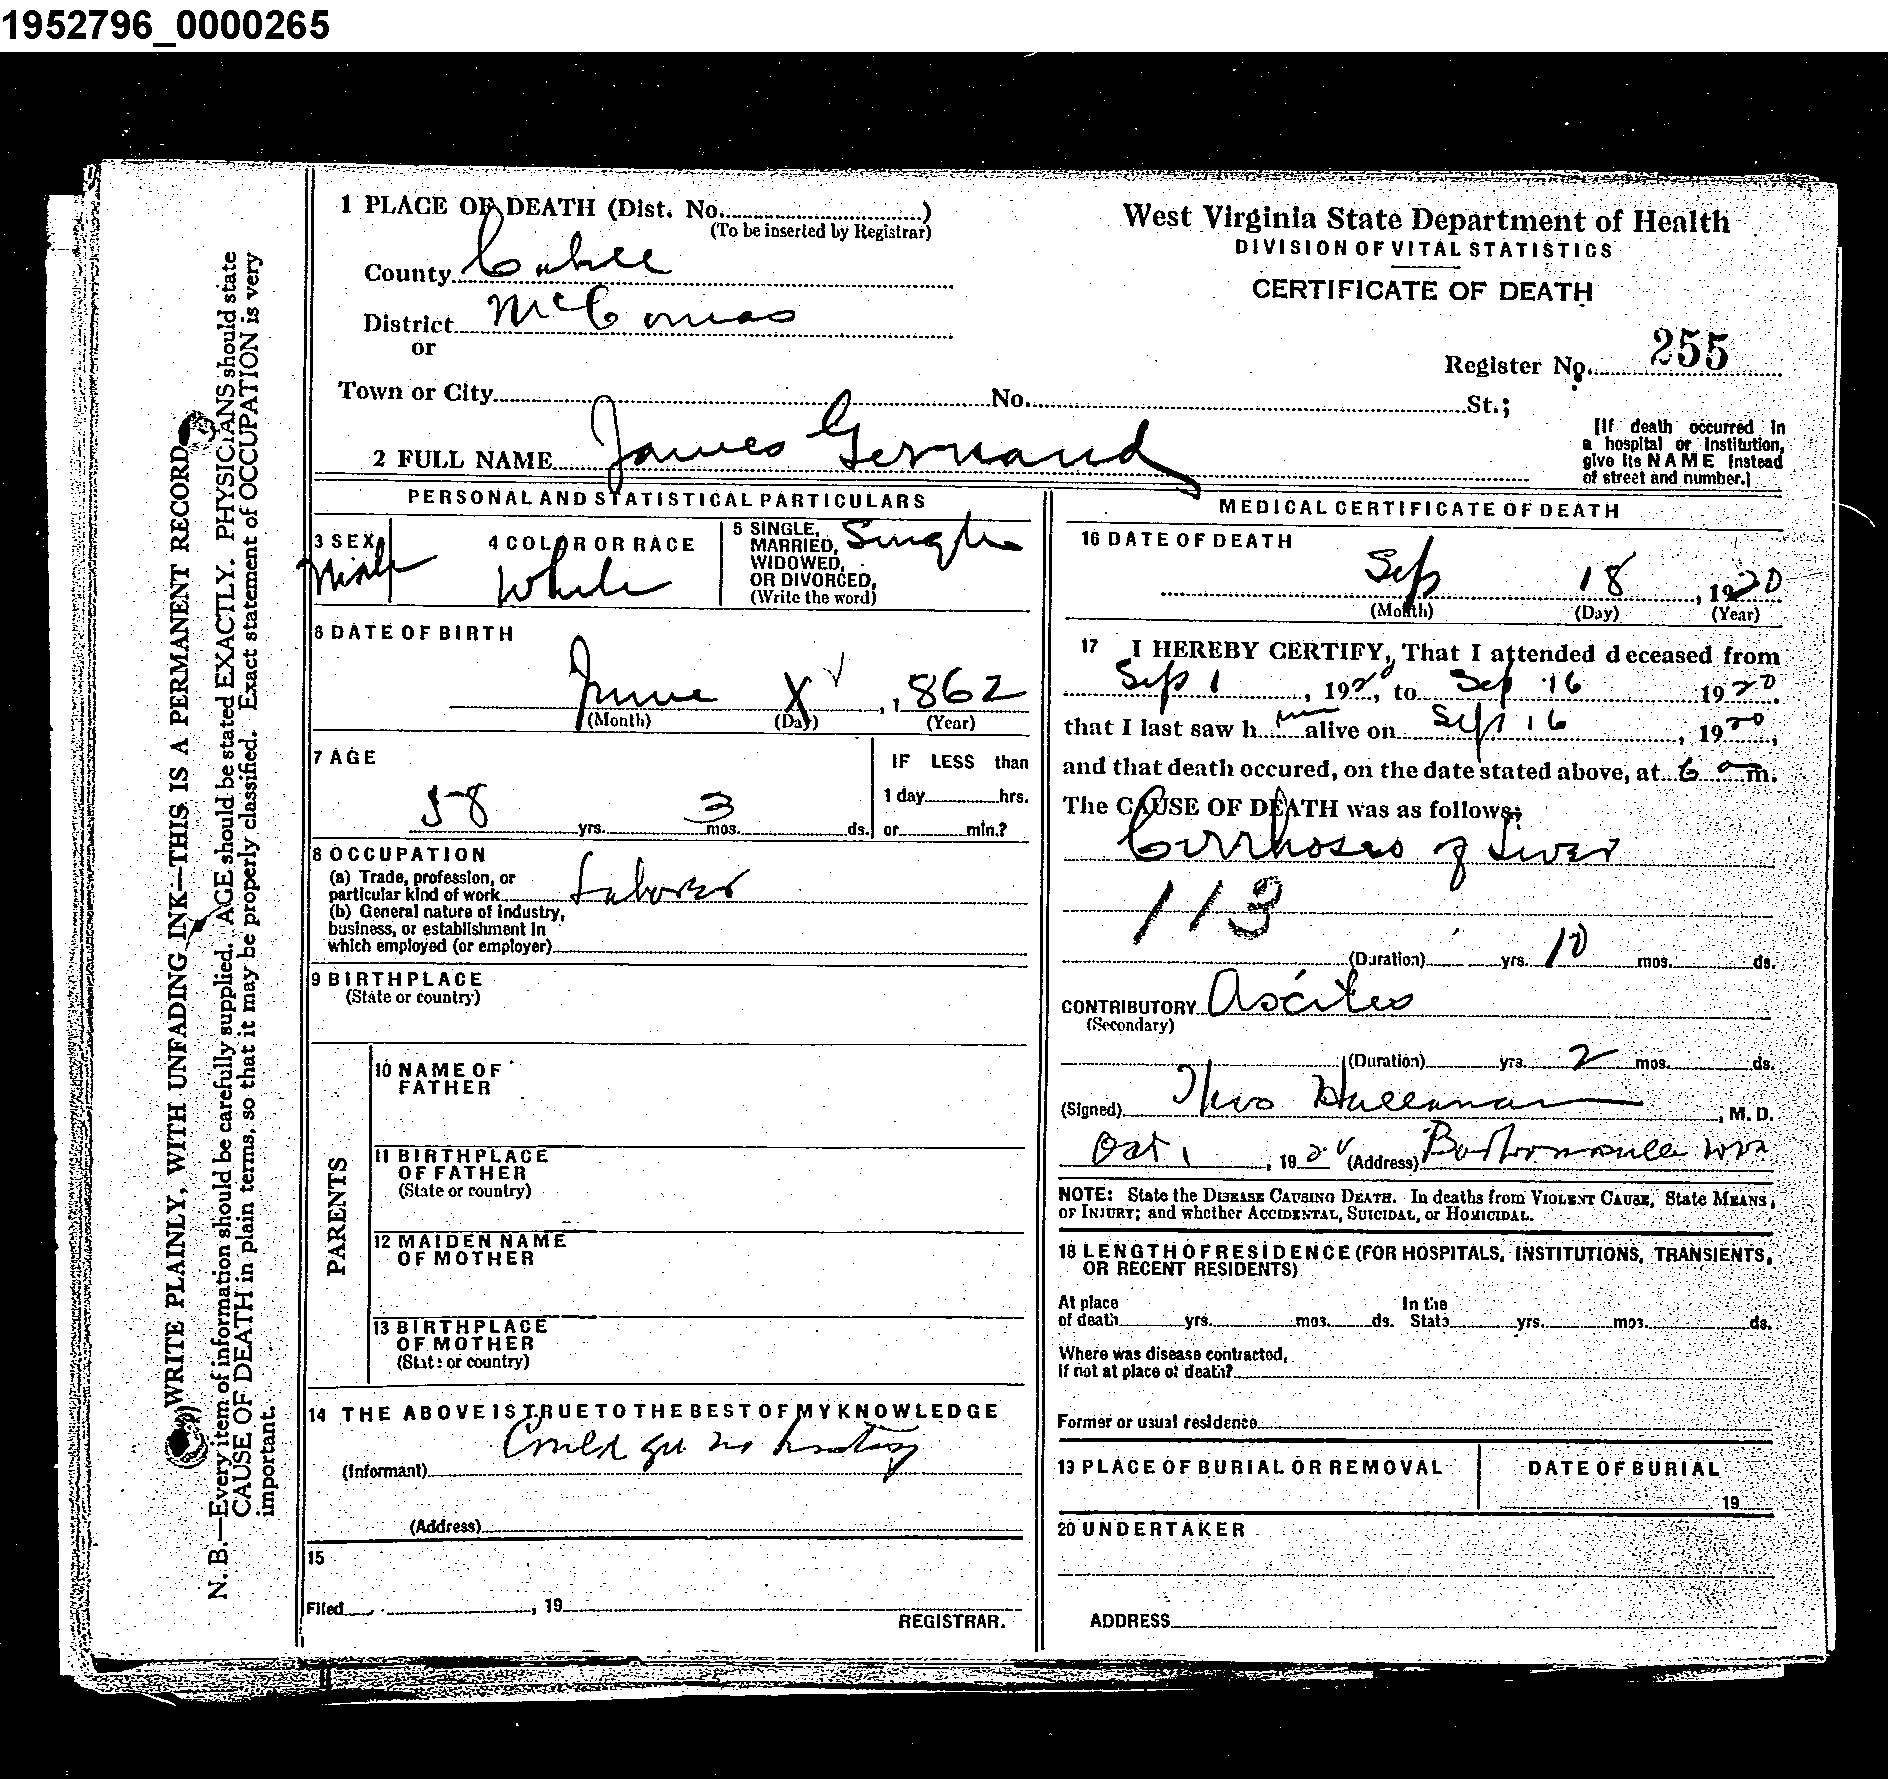 1952796_0000265
1 PLACE OF DEATH (Dist. No. )
(To be inserted by Registrar)
County Cabell
District McComas
or
Town or City No. St.;
2 FULL NAME James Gernand
West Virginia State Department of Health
DIVISION OF VITAL STATISTICS
CERTIFICATE OF DEATH
Register No. 255
[If death occurred in
a hospital or institution,
give its NAME instead
of street and number.]
PERSONAL AND STATISTICAL PARTICULARS
3 SEX
Male
4 COLOR OR RACE
White
5 SINGLE,
MARRIED,
WIDOWED,
OR DIVORCED,
(Write the word)
Single
6 DATE OF BIRTH
June X , 1862
(Month) (Day) (Year)
7 AGE
58 yrs. 3 mos. ds.
IF LESS than
1 day hrs.
or min.?
8 OCCUPATION
(a) Trade, profession, or
particular kind of work Laborer
(b) General nature of industry,
business, or establishment in
which employed (or employer)
9 BIRTHPLACE
(State or country)
PARENTS
10 NAME OF
FATHER
11 BIRTHPLACE
OF FATHER
(State or country)
12 MAIDEN NAME
OF MOTHER
13 BIRTHPLACE
OF MOTHER
(State or country)
14 THE ABOVE IS TRUE TO THE BEST OF MY KNOWLEDGE
Could get no history
(Informant)
(Address)
15
Filed , 19
REGISTRAR.
MEDICAL CERTIFICATE OF DEATH
16 DATE OF DEATH
Sep 18 , 1920
(Month) (Day) (Year)
17 I HEREBY CERTIFY, That I attended deceased from
Sep 1 , 1920, to Sep 16 1920
that I last saw h im alive on Sep 16 , 1920,
and that death occured, on the date stated above, at 6 a m.
The CAUSE OF DEATH was as follows;
Cirrhosis of Liver
113
(Duration) yrs. 10 mos. ds.
CONTRIBUTORY Ascites
(Secondary)
(Duration) yrs. 2 mos. ds.
(Signed) , M. D.
Oct 1 , 1920 (Address) Barboursville WVa
NOTE: State the DISEASE CAUSING DEATH. In deaths from VIOLENT CAUSE, State MEANS,
OF INJURY; and whether ACCIDENTAL, SUICIDAL, or HOMICIDAL.
18 LENGTH OF RESIDENCE (FOR HOSPITALS, INSTITUTIONS, TRANSIENTS,
OR RECENT RESIDENTS)
At place
of death yrs. mos. ds.
In the
State yrs. mos. ds.
Where was disease contracted,
If not at place of death?
Former or usual residence
13 PLACE OF BURIAL OR REMOVAL
DATE OF BURIAL
19
20 UNDERTAKER
ADDRESS
WRITE PLAINLY, WITH UNFADING INK—THIS IS A PERMANENT RECORD
N. B.—Every item of information should be carefully supplied. AGE should be stated EXACTLY. PHYSICIANS should state
CAUSE OF DEATH in plain terms, so that it may be properly classified. Exact statement of OCCUPATION is very
important.